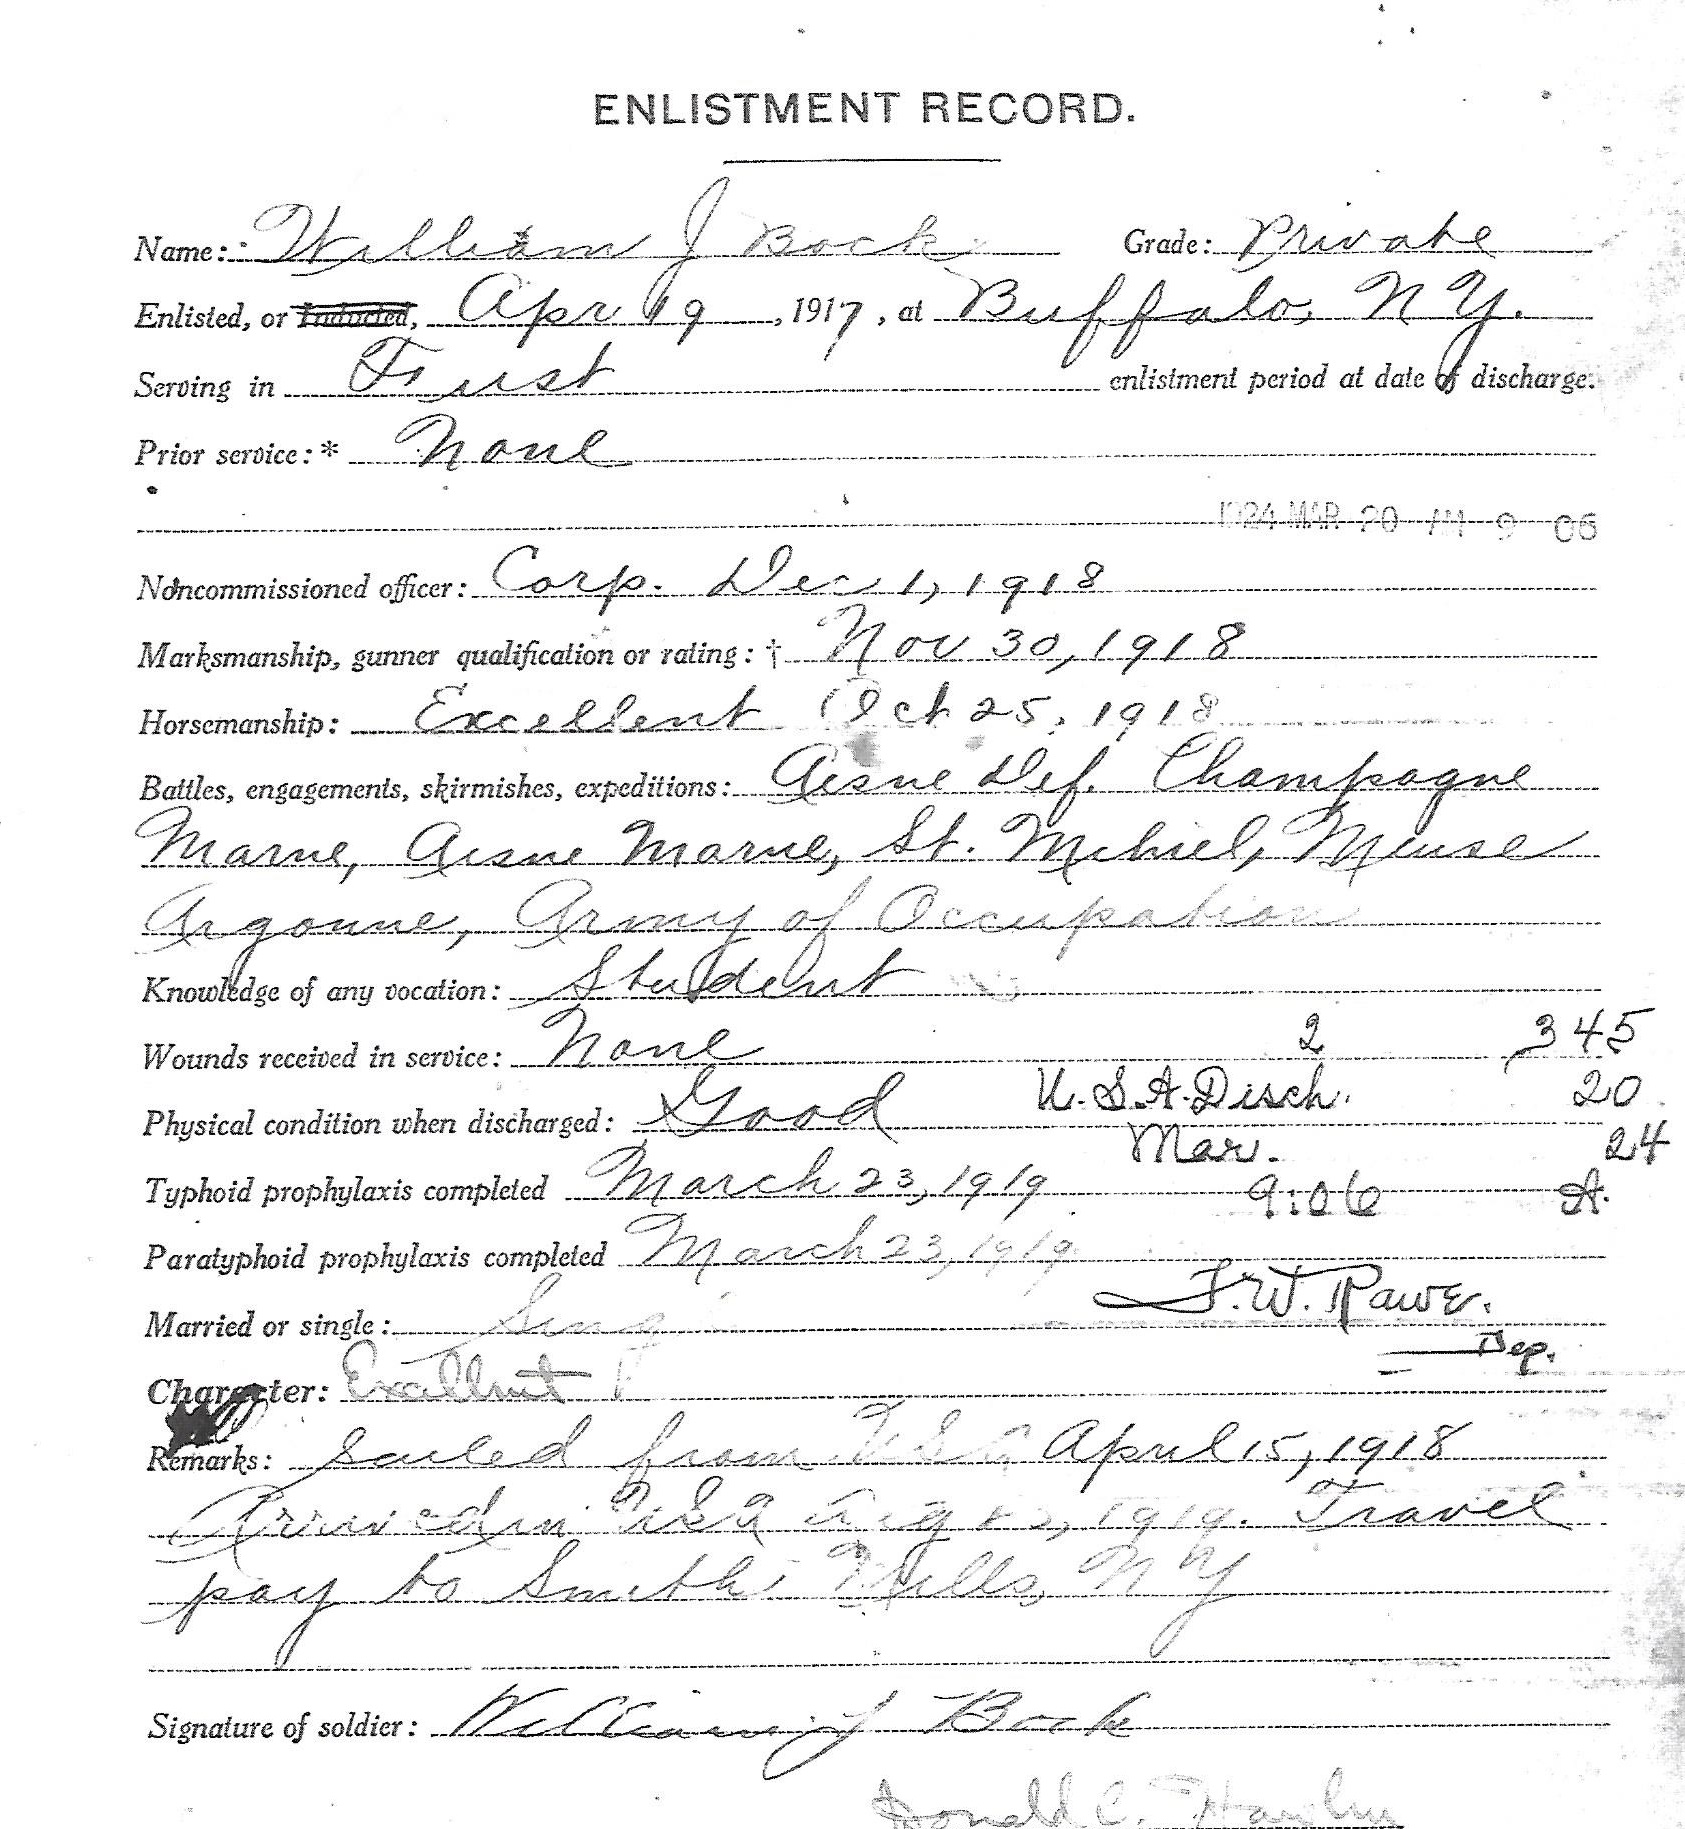 ENLISTMENT RECORD.
Name: William J Bock Grade: Private
Enlisted, or Inducted, Apr 19, 1917, at Buffalo, N Y.
Serving in First enlistment period at date of discharge.
Prior service:* None
1924 MAR 20 AM 9 06
Noncommissioned officer: Corp. Dec 1, 1918
Marksmanship, gunner qualification or rating:† Nov 30, 1918
Horsemanship: Excellent Oct 25, 1918
Battles, engagements, skirmishes, expeditions: Aisne Def. Champagne
Marne, Aisne Marne, St. Mehiel, Meuse
Argonne, Army of Occupation
Knowledge of any vocation: Student
Wounds received in service: None 2 345
Physical condition when discharged: Good U.S.A. Disch. 20
Mar. 24
Typhoid prophylaxis completed March 23, 1919 9:06 A.
Paratyphoid prophylaxis completed March 23, 1919
Married or single: F. W. Rawe.
Dep.
Character: Excellent
Remarks: Sailed from USA April 15, 1918
Arrived in USA 1919. Travel
pay to Smiths Mills, N Y
Signature of soldier: William J Bock
Donald C.